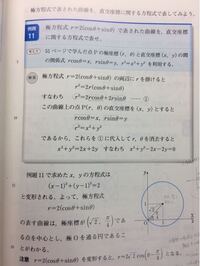 極方程式で表された曲線を，直交座標に関する方程式で表してみよう。
例題
11
極方程式 r=2(cosθ+sinθ) で表された曲線を，直交座標
に関する方程式で表せ。
51ページで学んだ点Pの極座標(r, θ)と直交座標(x, y)の間
の関係式 rcosθ=x, rsinθ=y, r²=x²+y² を利用する。
極方程式 r=2(cosθ+sinθ) の両辺に r を掛けると
r²=2r(cosθ+sinθ)
すなわち r²=2rcosθ+2rsinθ ①
この曲線上の点P(r, θ)の直交座標を(x, y)とすると
rcosθ=x, rsinθ=y
r²=x²+y²
であるから，これらを①に代入して r, θ を消去すると
x²+y²=2x+2y すなわち x²+y²-2x-2y=0
例題11で求めた x, y の方程式は
(x-1)²+(y-1)²=2
と変形される。よって，極方程式
r=2(cosθ+sinθ)
の表す曲線は，極座標が (√2, π/4) であ
る点を中心とし，極Oを通る円であるこ
とがわかる。
注意 r=2(cosθ+sinθ) を変形すると，r=2√2 cos(θ-π/4)